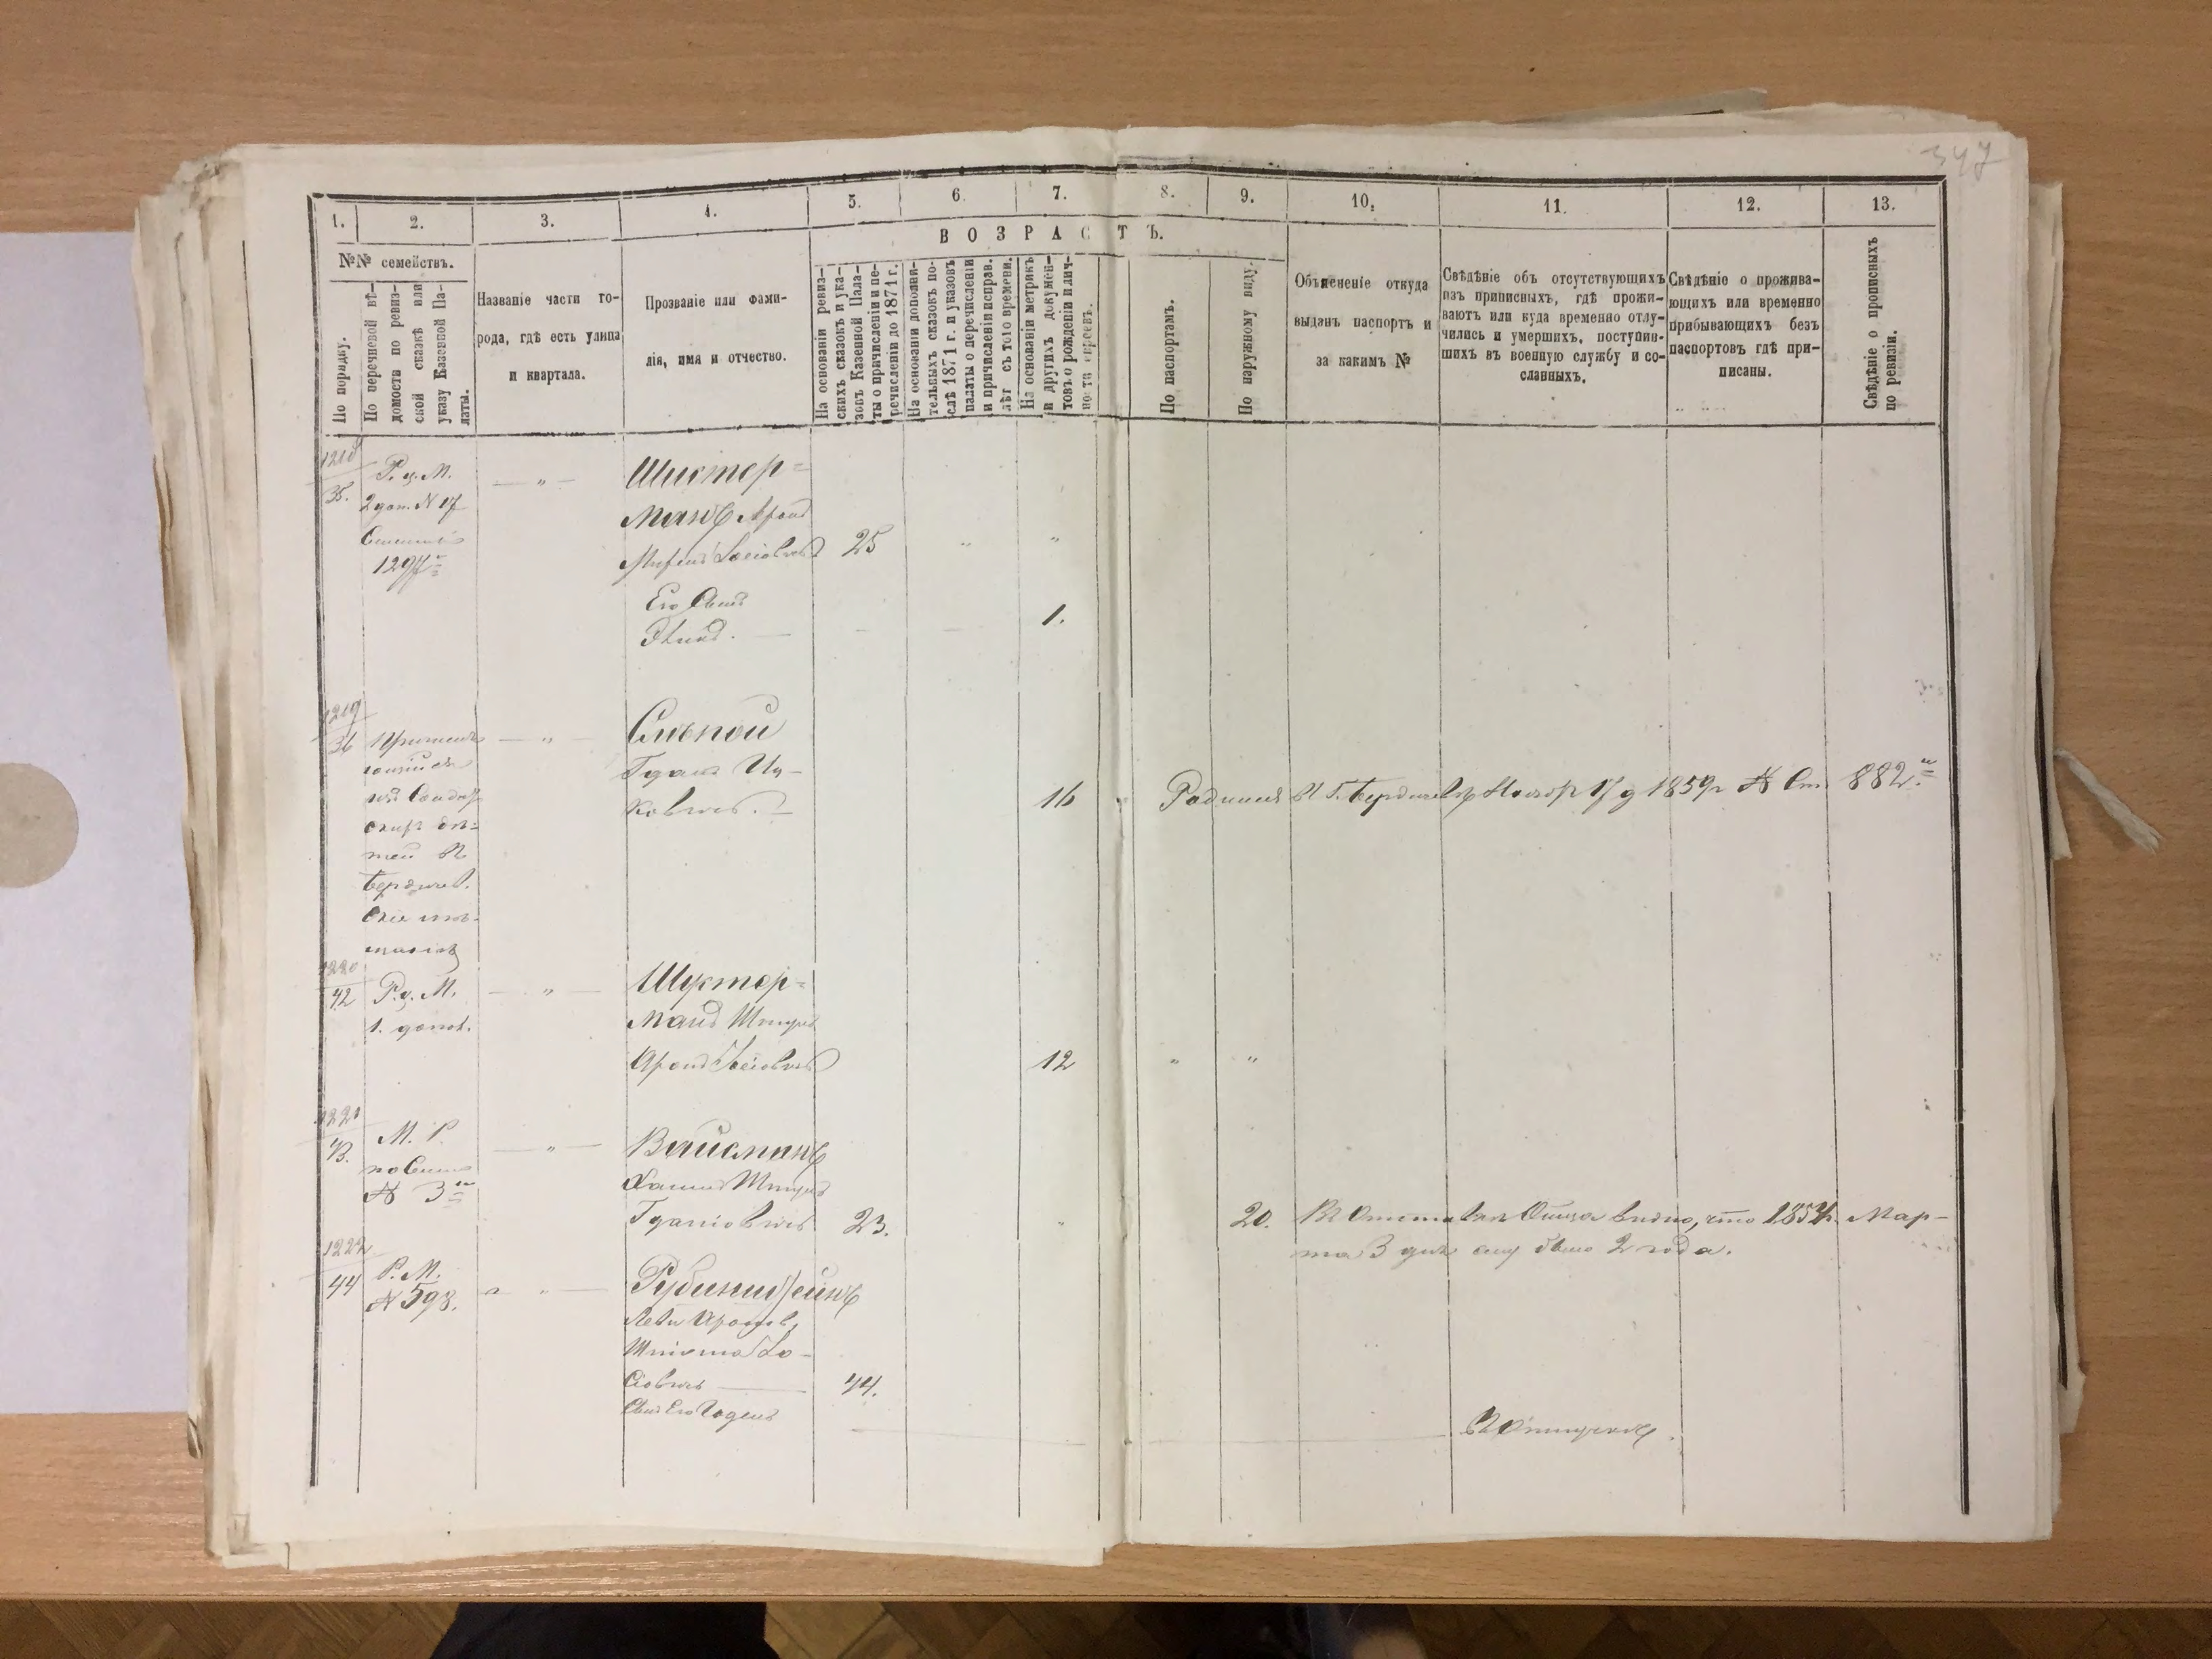 347
1.
2.
3.
4.
5.
6.
7.
8.
9.
10.
11.
12.
13.
ВОЗРАСТЪ.
№№ семействъ.
По порядку.
По перечневой вѣ-
домости по ревиз-
ской сказкѣ или
указу Казенной Па-
латы.
Названіе части го-
рода, гдѣ есть улица
и квартала.
Прозваніе или фами-
лія, имя и отчество.
На основаніи ревиз-
скихъ сказокъ и ука-
зовъ Казенной Пала-
ты о причисленіи и пе-
речисленіи до 1871 г.
На основаніи дополни-
тельныхъ сказокъ по-
слѣ 1871 г. и указовъ
палаты о перечисленіи
и причисленіи исправ.
лѣт съ того времени.
На основаніи метрикъ
и другихъ докумен-
товъ о рожденіи и лич-
ности евреевъ.
По паспортамъ.
По наружному виду.
Объясненіе откуда
выданъ паспортъ и
за какимъ №
Свѣдѣніе объ отсутствующихъ
изъ приписныхъ, гдѣ прожи-
ваютъ или куда временно отлу-
чились и умершихъ, поступив-
шихъ въ военную службу и со-
сланныхъ.
Свѣдѣніе о прожива-
ющихъ или временно
прибывающихъ безъ
паспортовъ гдѣ при-
писаны.
Свѣдѣніе о прописныхъ
по ревизіи.
1218
35.
Р. д. М.
2 доп. № 17
1297
— „ —
Шистер=
манъ Аронъ
Іосіовичъ 25 „ „
Его Сынъ
1.
1219
36
— „ —
Слѣпой
Гдаль Иц-
ковичъ. — 16
Родился въ Г. Бердичевѣ Ноябр 17 д 1859 г № Ст. 882.
Бердичев.
1220
42
Р. д. М.
1. допол.
— „ —
Шустер=
манъ Шмуль
Аронъ Іосіовичъ 12 „ „
1221
43.
М. Р.
№ 3
— „ —
Вайсманъ
Хаимъ Шмуль
Гдаліовичъ 23. „ 20. Въ Отставкѣ Отца видно, что 1854 г. Мар-
та 3 дня ему было 2 года.
1222
44
Р. М.
№ 593.
— „ —
Рубинштейнъ
Іо-
сіовичъ — 44.
Сынъ Его
Въ Отлучкѣ.